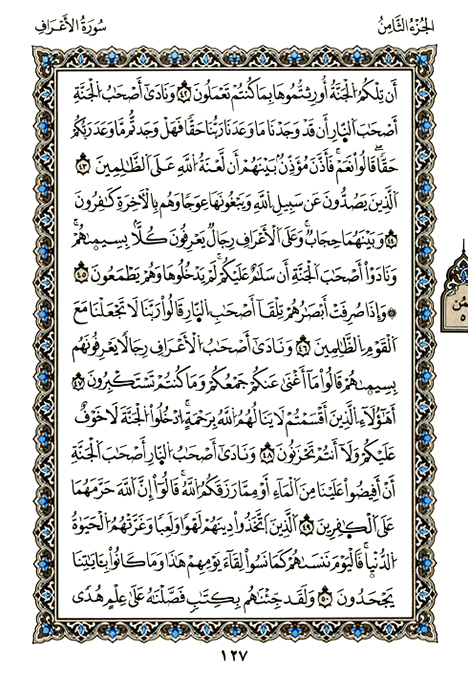 الجُزْءُ الثَّامِنُ
سُورَةُ الأَعْرَافِ
أَن تِلْكُمُ الْجَنَّةُ أُورِثْتُمُوهَا بِمَا كُنتُمْ تَعْمَلُونَ ٤٢ وَنَادَىٰ أَصْحَٰبُ الْجَنَّةِ
أَصْحَٰبَ النَّارِ أَن قَدْ وَجَدْنَا مَا وَعَدَنَا رَبُّنَا حَقًّا فَهَلْ وَجَدتُّم مَّا وَعَدَ رَبُّكُمْ
حَقًّا ۖ قَالُوا۟ نَعَمْ ۚ فَأَذَّنَ مُؤَذِّنٌۢ بَيْنَهُمْ أَن لَّعْنَةُ اللَّهِ عَلَى الظَّٰلِمِينَ ٤٣
الَّذِينَ يَصُدُّونَ عَن سَبِيلِ اللَّهِ وَيَبْغُونَهَا عِوَجًا وَهُم بِالْءَاخِرَةِ كَٰفِرُونَ
٤٤ وَبَيْنَهُمَا حِجَابٌ ۚ وَعَلَى الْأَعْرَافِ رِجَالٌ يَعْرِفُونَ كُلًّۢا بِسِيمَىٰهُمْ ۚ
وَنَادَوْا۟ أَصْحَٰبَ الْجَنَّةِ أَن سَلَٰمٌ عَلَيْكُمْ ۚ لَمْ يَدْخُلُوهَا وَهُمْ يَطْمَعُونَ ٤٥
۞ وَإِذَا صُرِفَتْ أَبْصَٰرُهُمْ تِلْقَآءَ أَصْحَٰبِ النَّارِ قَالُوا۟ رَبَّنَا لَا تَجْعَلْنَا مَعَ
الْقَوْمِ الظَّٰلِمِينَ ٤٦ وَنَادَىٰٓ أَصْحَٰبُ الْأَعْرَافِ رِجَالًا يَعْرِفُونَهُم
بِسِيمَىٰهُمْ قَالُوا۟ مَآ أَغْنَىٰ عَنكُمْ جَمْعُكُمْ وَمَا كُنتُمْ تَسْتَكْبِرُونَ ٤٧
أَهَٰٓؤُلَآءِ الَّذِينَ أَقْسَمْتُمْ لَا يَنَالُهُمُ اللَّهُ بِرَحْمَةٍ ۚ ادْخُلُوا۟ الْجَنَّةَ لَا خَوْفٌ
عَلَيْكُمْ وَلَآ أَنتُمْ تَحْزَنُونَ ٤٨ وَنَادَىٰٓ أَصْحَٰبُ النَّارِ أَصْحَٰبَ الْجَنَّةِ
أَنْ أَفِيضُوا۟ عَلَيْنَا مِنَ الْمَآءِ أَوْ مِمَّا رَزَقَكُمُ اللَّهُ ۚ قَالُوٓا۟ إِنَّ اللَّهَ حَرَّمَهُمَا
عَلَى الْكَٰفِرِينَ ٤٩ الَّذِينَ اتَّخَذُوا۟ دِينَهُمْ لَهْوًا وَلَعِبًا وَغَرَّتْهُمُ الْحَيَوٰةُ
الدُّنْيَا ۚ فَالْيَوْمَ نَنسَىٰهُمْ كَمَا نَسُوا۟ لِقَآءَ يَوْمِهِمْ هَٰذَا وَمَا كَانُوا۟ بِـَٔايَٰتِنَا
يَجْحَدُونَ ٥٠ وَلَقَدْ جِئْنَٰهُم بِكِتَٰبٍ فَصَّلْنَٰهُ عَلَىٰ عِلْمٍ هُدًى
١٢٧